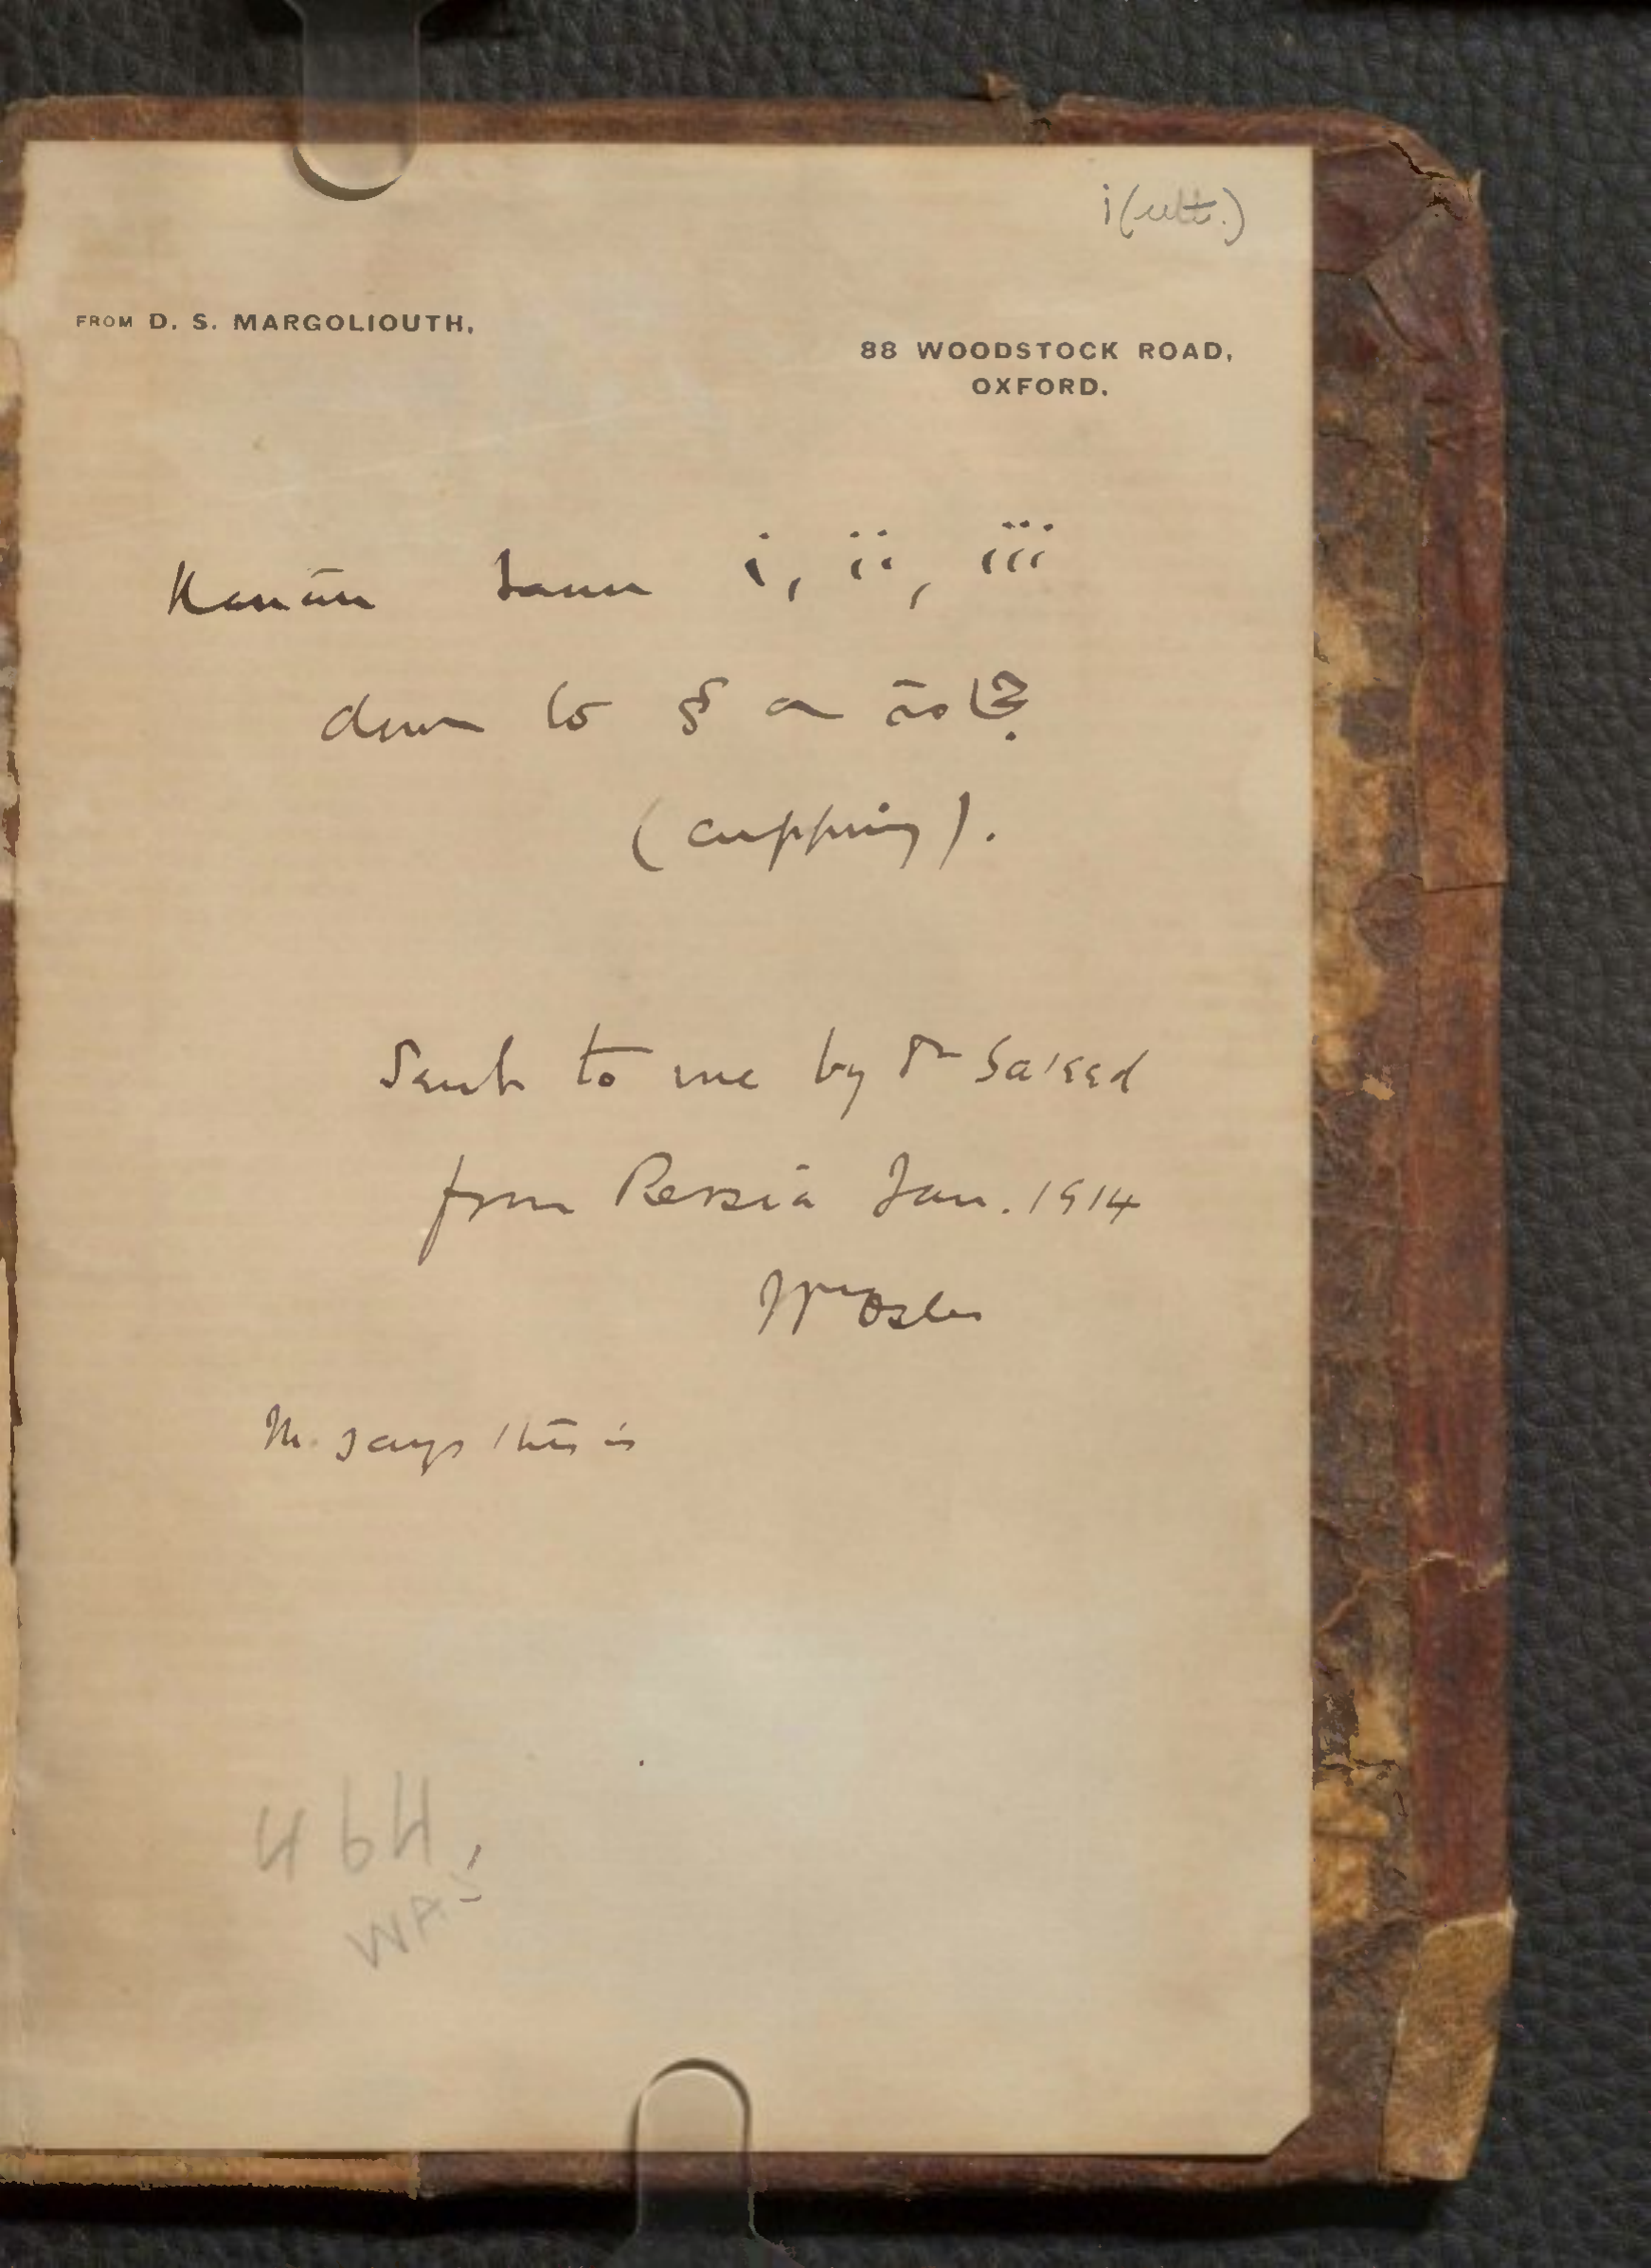 i(ult.)
FROM D. S. MARGOLIOUTH,
88 WOODSTOCK ROAD,
OXFORD.
Kanūn i, ii, iii
down to § on حجامة
(cupping).
Sent to me by Dr Sa'eed
from Persia Jan. 1914
Wm Osler
M. says this is
464
WAS